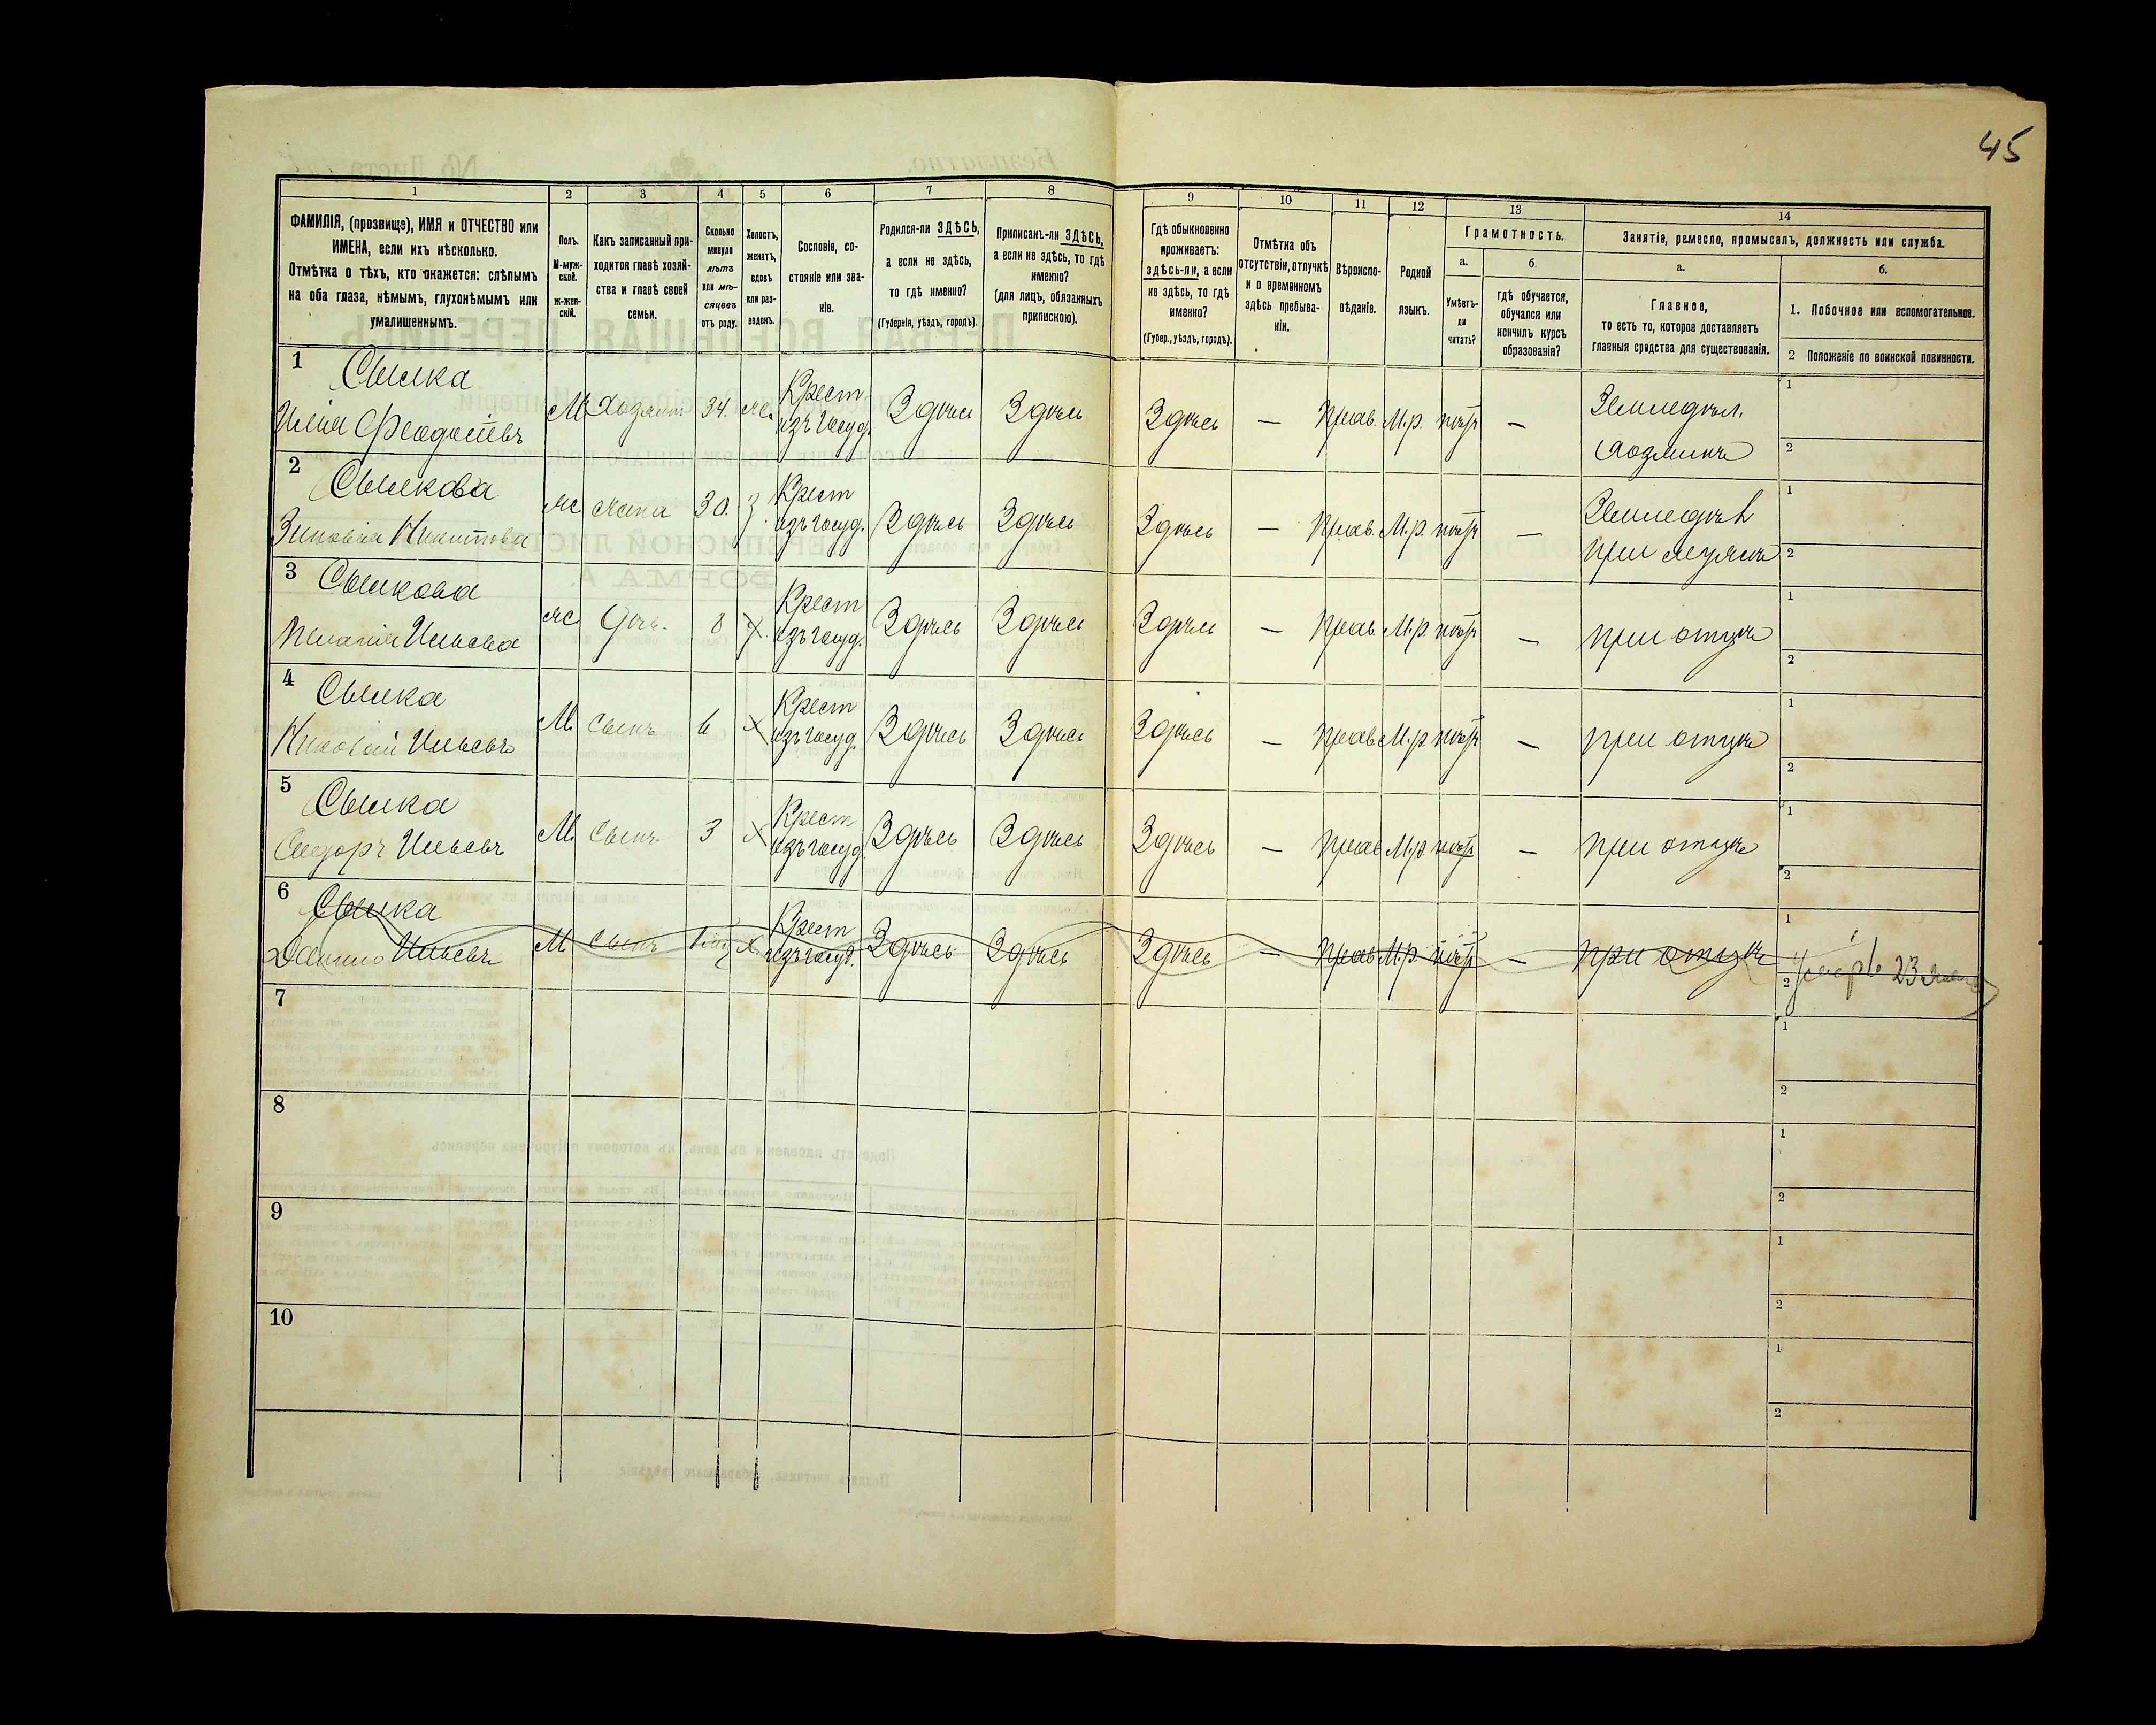 45
1 2 3 4 5 6 7 8 9 10 11 12 13 14
ФАМИЛІЯ, (прозвище), ИМЯ и ОТЧЕСТВО или
ИМЕНА, если ихъ нѣсколько.
Отмѣтка о тѣхъ, кто окажется: слѣпымъ
на оба глаза, нѣмымъ, глухонѣмымъ или
умалишеннымъ.
Полъ.
М-муж-
ской.
ж-жен-
скій.
Какъ записанный при-
ходится главѣ хозяй-
ства и главѣ своей
семьи.
Сколько
минуло
лѣтъ
или мѣ-
сяцевъ
отъ роду.
Холостъ,
женатъ,
вдовъ
или раз-
веденъ.
Сословіе, со-
стояніе или зва-
ніе.
Родился-ли ЗДѢСЬ,
а если не здѣсь,
то гдѣ именно?
(Губернія, уѣздъ, городъ).
Приписанъ-ли ЗДѢСЬ,
а если не здѣсь, то гдѣ
именно?
(для лицъ, обязанныхъ
припискою).
Гдѣ обыкновенно
проживаетъ:
здѣсь-ли, а если
не здѣсь, то гдѣ
именно?
(Губер., уѣздъ, городъ).
Отмѣтка объ
отсутствіи, отлучкѣ
и о временномъ
здѣсь пребыва-
ніи.
Вѣроиспо-
вѣданіе.
Родной
языкъ.
Грамотность.
а.
Умѣетъ-
ли
читать?
б.
гдѣ обучается,
обучался или
кончилъ курсъ
образованія?
Занятіе, ремесло, промыселъ, должность или служба.
а.
Главное,
то есть то, которое доставляетъ
главныя средства для существованія.
б.
1. Побочное или вспомогательное.
2 Положеніе по воинской повинности.
1 Сымка
Илія
М Хозяинъ 34. ж. Крест изъ госуд. Здѣсь Здѣсь Здѣсь — Прав. М.р. нѣтъ — Земледѣл. хозяинъ 1 2
2 Сымкова
Зиновія Никитова
ж жена 30. з. Крест изъ госуд. Здѣсь Здѣсь Здѣсь — Прав. М.р. нѣтъ — Земледѣл при мужѣ 1 2
3 Сымкова
Пелагія Ильева
ж Дочь. 8 Крест изъ госуд. Здѣсь Здѣсь Здѣсь — Прав. М.р. нѣтъ — при отцѣ 1 2
4 Сымка
Николай Ильевъ
М. Сынъ 6 х Крест изъ госуд. Здѣсь Здѣсь Здѣсь — Прав. М.р. нѣтъ — при отцѣ 1 2
5 Сымка
Ильевъ
М. Сынъ 3 х Крест изъ госуд. Здѣсь Здѣсь Здѣсь — Прав. М.р. нѣтъ — при отцѣ 1 2
6 Сымка
Данило Ильевъ
М Сынъ х Крест изъ госуд. Здѣсь Здѣсь Здѣсь — Прав М.р. нѣтъ — при отцѣ 1 2 умеръ 23
7 1 2
8 1 2
9 1 2
10 1 2